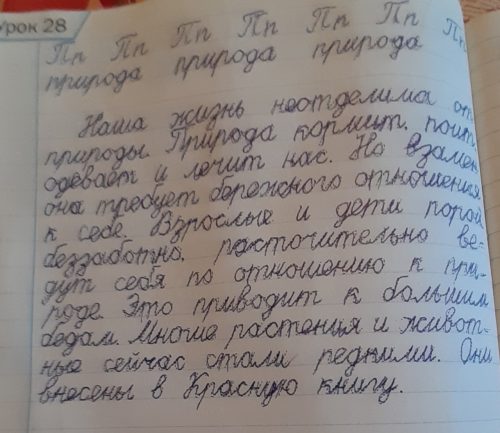 Урок 28
Пп Пп Пп Пп Пп Пп Пп
природа природа природа
Наша жизнь неотделима от
природы. Природа кормит, поит
одевает и лечит нас. Но взамен
она требует бережного отношения
к себе. Взрослые и дети порой
беззаботно, расточительно ве-
дут себя по отношению к при-
роде. Это приводит к большим
бедам. Многие растения и живот-
ные сейчас стали редкими. Они
внесены в Красную книгу.